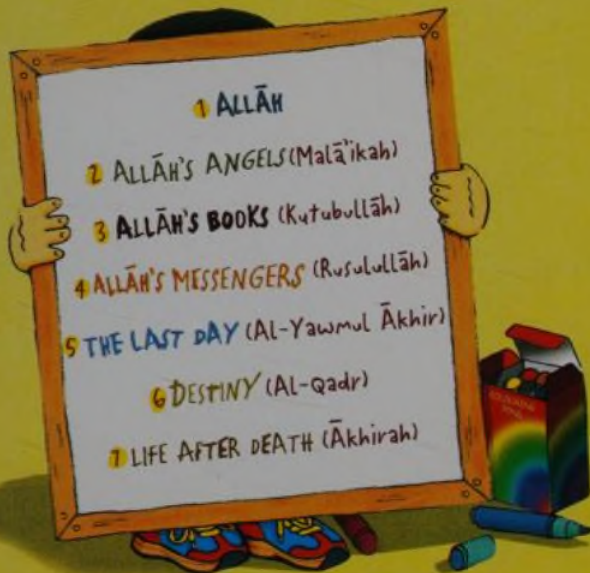 1 ALLĀH
2 ALLĀH'S ANGELS (Malā'ikah)
3 ALLĀH'S BOOKS (Kutubullāh)
4 ALLĀH'S MESSENGERS (Rusulullāh)
5 THE LAST DAY (Al-Yawmul Ākhir)
6 DESTINY (Al-Qadr)
7 LIFE AFTER DEATH (Ākhirah)